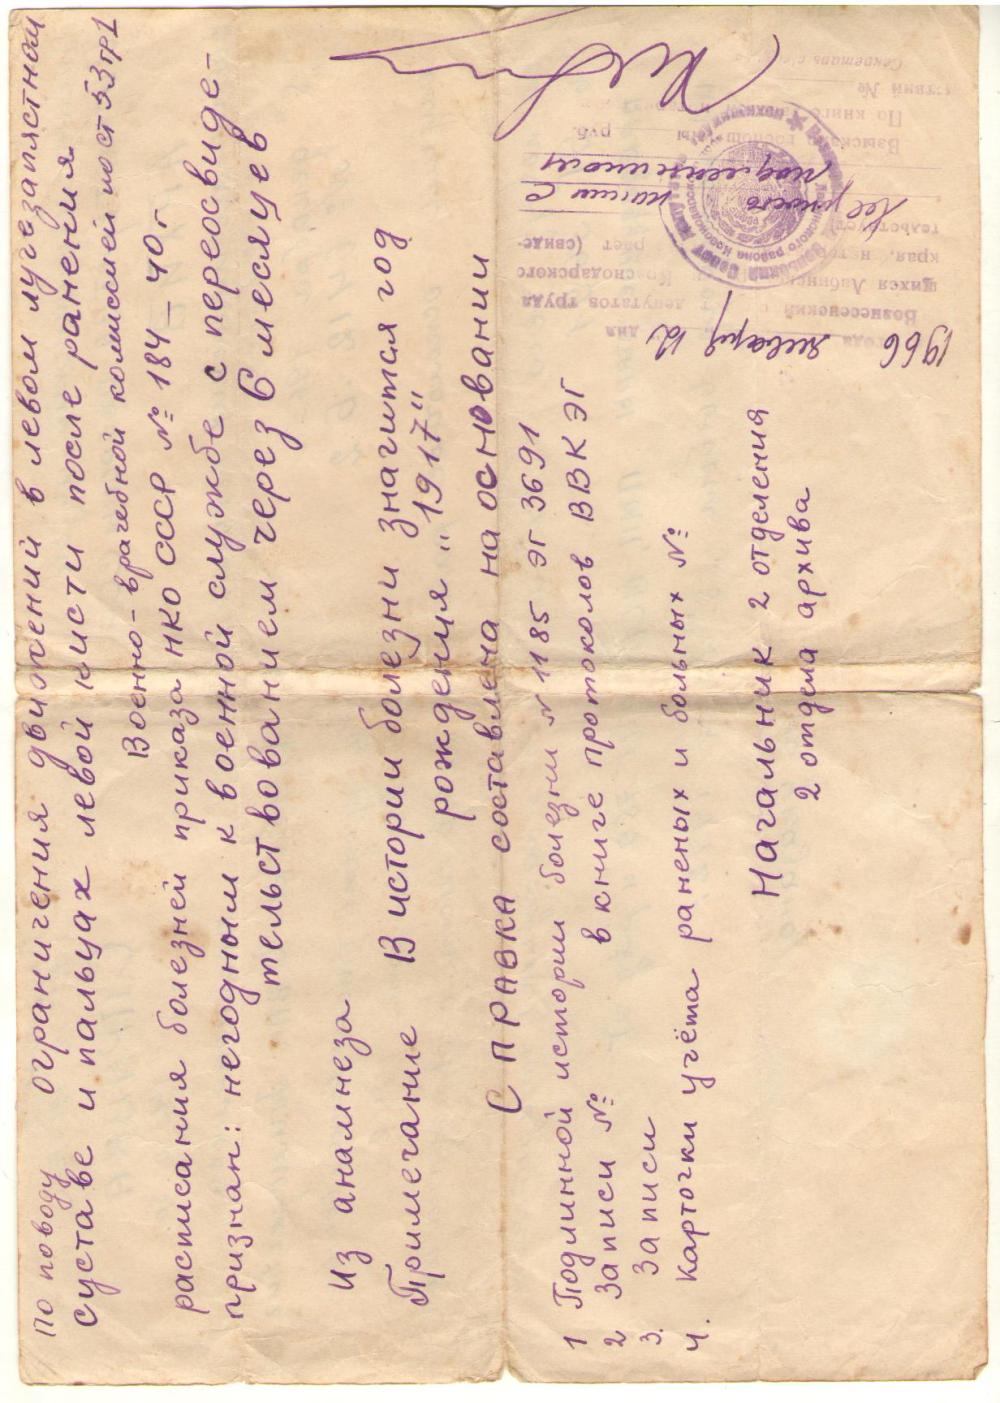 по поводу ограничения движений в левом лучезапястном
суставе и пальцах левой кисти после ранения
Военно-врачебной комиссией по ст 53 гр 1
расписания болезней приказа НКО СССР № 184 – 40 г
признан: негодным к военной службе с переосвиде-
тельствованием через 6 месяцев
Из анамнеза
Примечание В истории болезни значится год
рождения "1917"
Справка составлена на основании
1 Подлинной истории болезни № 1185 ЭГ 3691
2 Записи № в книге протоколов ВВК ЭГ
3. Записи
4. Карточки учёта раненых и больных №
Начальник 2 отделения
2 отдела архива
1966 года января 12 дня
Вознесенский депутатов труда
щихся Лабинск Краснодарского
края,
(свиде-
тельствует
верность копии с
подлинником
Взыскано госпошлины руб.
По книге
ствий №
Секретарь с/с